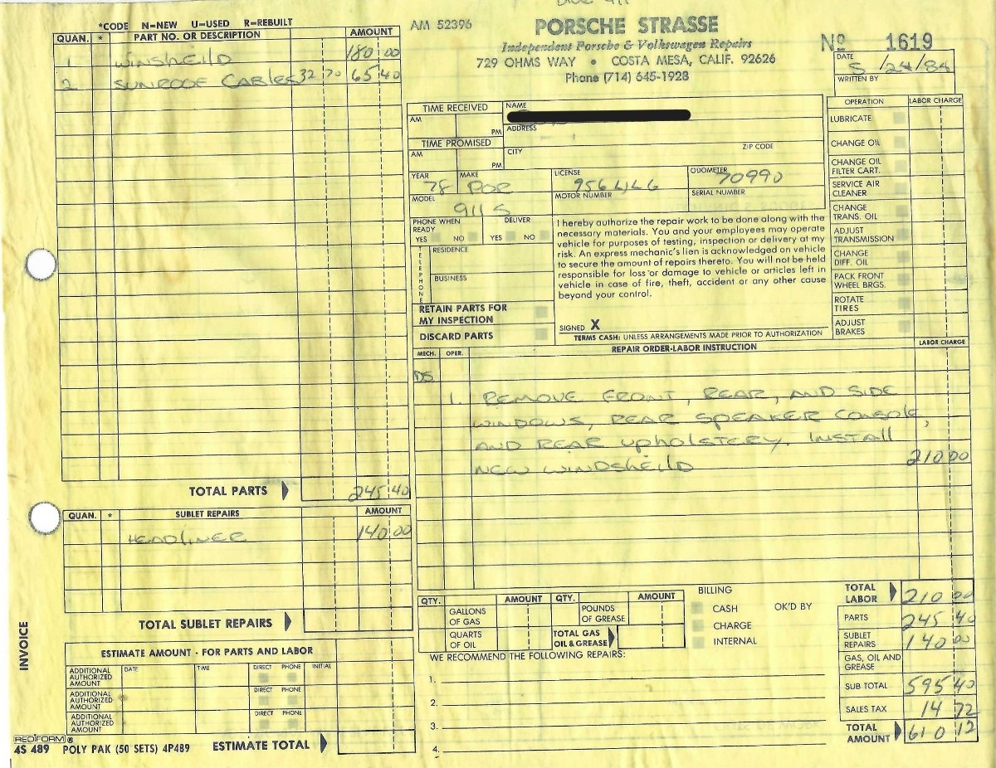 *CODE N=NEW U=USED R=REBUILT
QUAN. * PART NO. OR DESCRIPTION AMOUNT
1 WINSHEILD 180 00
2 SUNROOF CABLES 32 70 65 40
TOTAL PARTS 245 40
QUAN. * SUBLET REPAIRS AMOUNT
HEADLINER 140 00
TOTAL SUBLET REPAIRS
INVOICE
ESTIMATE AMOUNT - FOR PARTS AND LABOR
ADDITIONAL AUTHORIZED AMOUNT DATE TIME DIRECT PHONE INITIAL
ADDITIONAL AUTHORIZED AMOUNT DIRECT PHONE
ADDITIONAL AUTHORIZED AMOUNT DIRECT PHONE
REDIFORM®
4S 489 POLY PAK (50 SETS) 4P489 ESTIMATE TOTAL
911
AM 52396
PORSCHE STRASSE
Independent Porsche & Volkswagen Repairs
729 OHMS WAY • COSTA MESA, CALIF. 92626
Phone (714) 645-1928
No 1619
DATE 5/24/84
WRITTEN BY
TIME RECEIVED
AM PM
TIME PROMISED
AM PM
NAME
ADDRESS
CITY ZIP CODE
YEAR 78 MAKE POR LICENSE ODOMETER 70990
MODEL 911 S MOTOR NUMBER SERIAL NUMBER
PHONE WHEN READY YES NO
DELIVER YES NO
TELEPHONE
RESIDENCE
BUSINESS
RETAIN PARTS FOR
MY INSPECTION
DISCARD PARTS
I hereby authorize the repair work to be done along with the
necessary materials. You and your employees may operate
vehicle for purposes of testing, inspection or delivery at my
risk. An express mechanic's lien is acknowledged on vehicle
to secure the amount of repairs thereto. You will not be held
responsible for loss or damage to vehicle or articles left in
vehicle in case of fire, theft, accident or any other cause
beyond your control.
SIGNED X
TERMS CASH: UNLESS ARRANGEMENTS MADE PRIOR TO AUTHORIZATION
OPERATION LABOR CHARGE
LUBRICATE
CHANGE OIL
CHANGE OIL
FILTER CART.
SERVICE AIR
CLEANER
CHANGE
TRANS. OIL
ADJUST
TRANSMISSION
CHANGE
DIFF. OIL
PACK FRONT
WHEEL BRGS.
ROTATE
TIRES
ADJUST
BRAKES
MECH. OPER. REPAIR ORDER-LABOR INSTRUCTION LABOR CHARGE
DS
1. REMOVE FRONT, REAR, AND SIDE
WINDOWS, REAR SPEAKER CONSOLE,
AND REAR UPHOLSTERY. INSTALL
NEW WINDSHEILD 210 00
QTY. AMOUNT QTY. AMOUNT
GALLONS OF GAS POUNDS OF GREASE
QUARTS OF OIL TOTAL GAS OIL & GREASE
BILLING
CASH OK'D BY
CHARGE
INTERNAL
WE RECOMMEND THE FOLLOWING REPAIRS:
1.
2.
3.
4.
TOTAL LABOR 210 00
PARTS 245 40
SUBLET REPAIRS 140 00
GAS, OIL AND GREASE
SUB TOTAL 595 40
SALES TAX 14 72
TOTAL AMOUNT 610 12